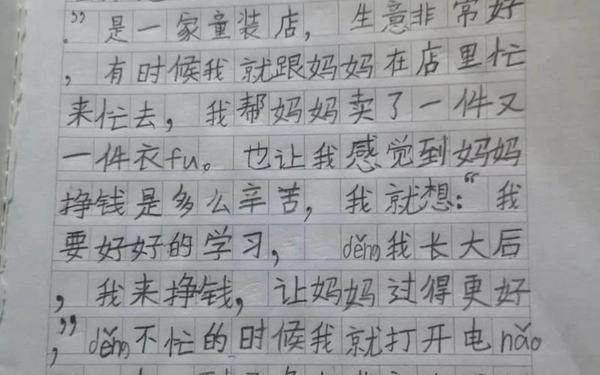 ”是一家童装店，生意非常好
，有时候我就跟妈妈在店里忙
来忙去，我帮妈妈卖了一件又
一件衣fu。也让我感觉到妈妈
挣钱是多么辛苦，我就想：“我
要好好的学习，děng我长大后
，我来挣钱，让妈妈过得更好
，”děng不忙的时候我就打开电nǎo